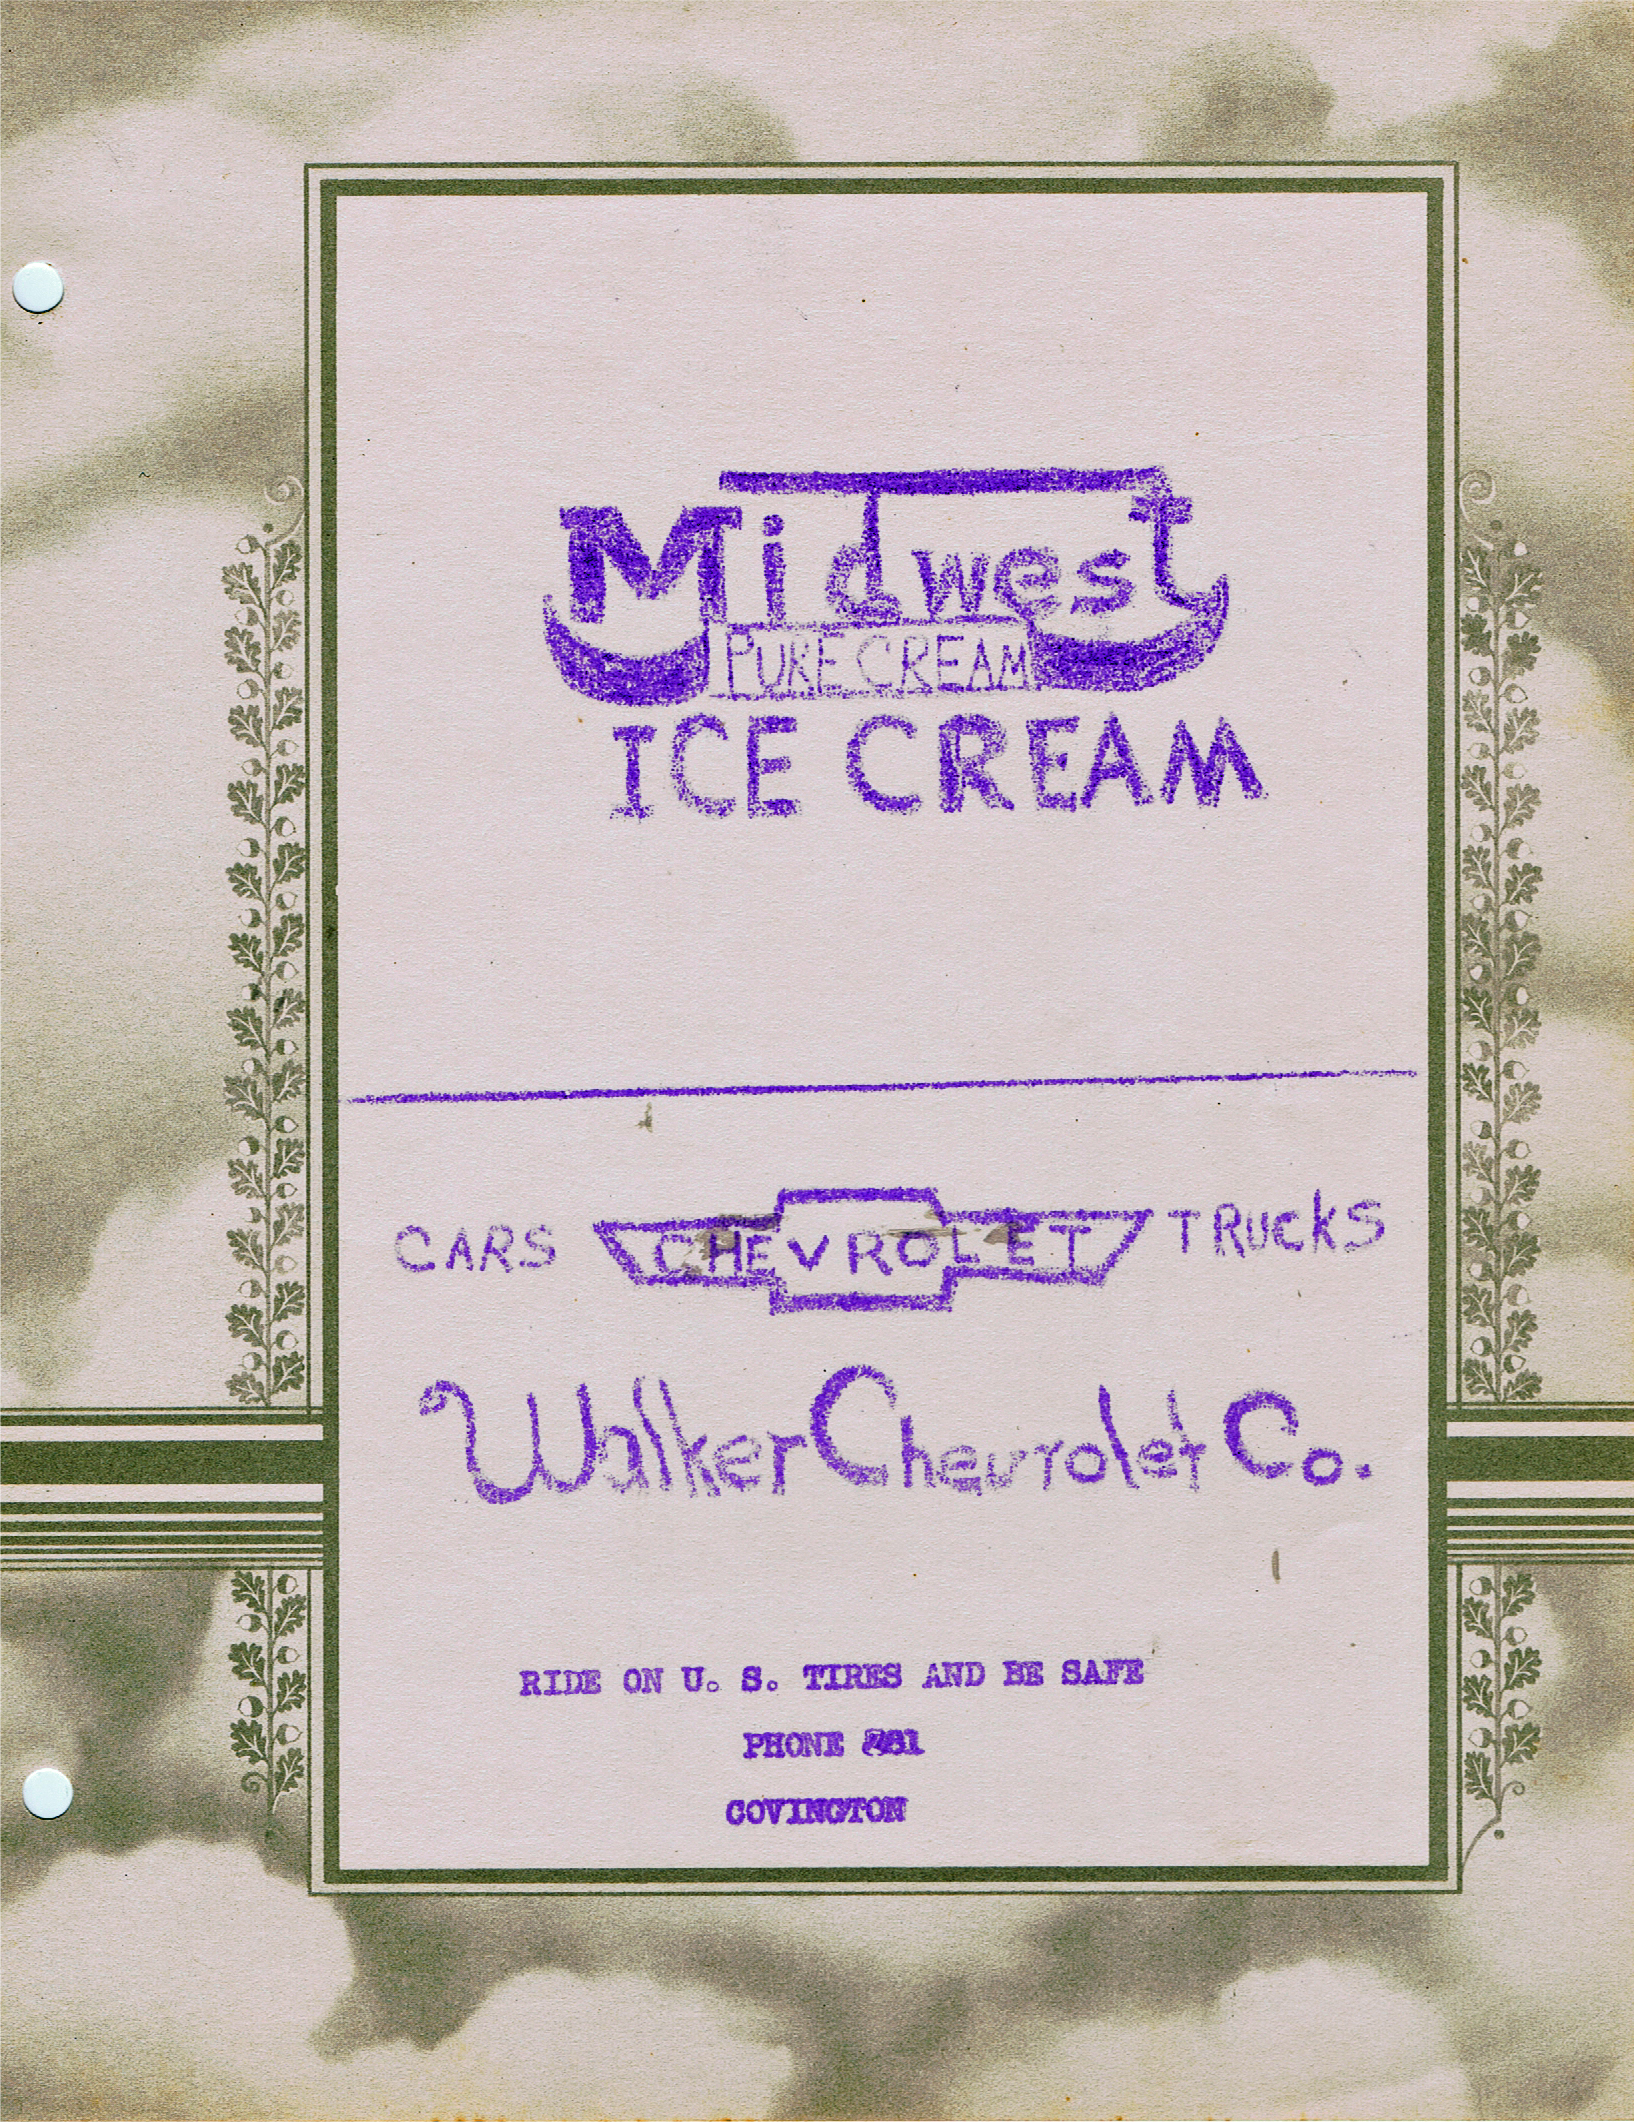 Midwest
PURE CREAM
ICE CREAM
CARS CHEVROLET TRUCKS
Walker Chevrolet Co.
RIDE ON U. S. TIRES AND BE SAFE
PHONE
COVINGTON